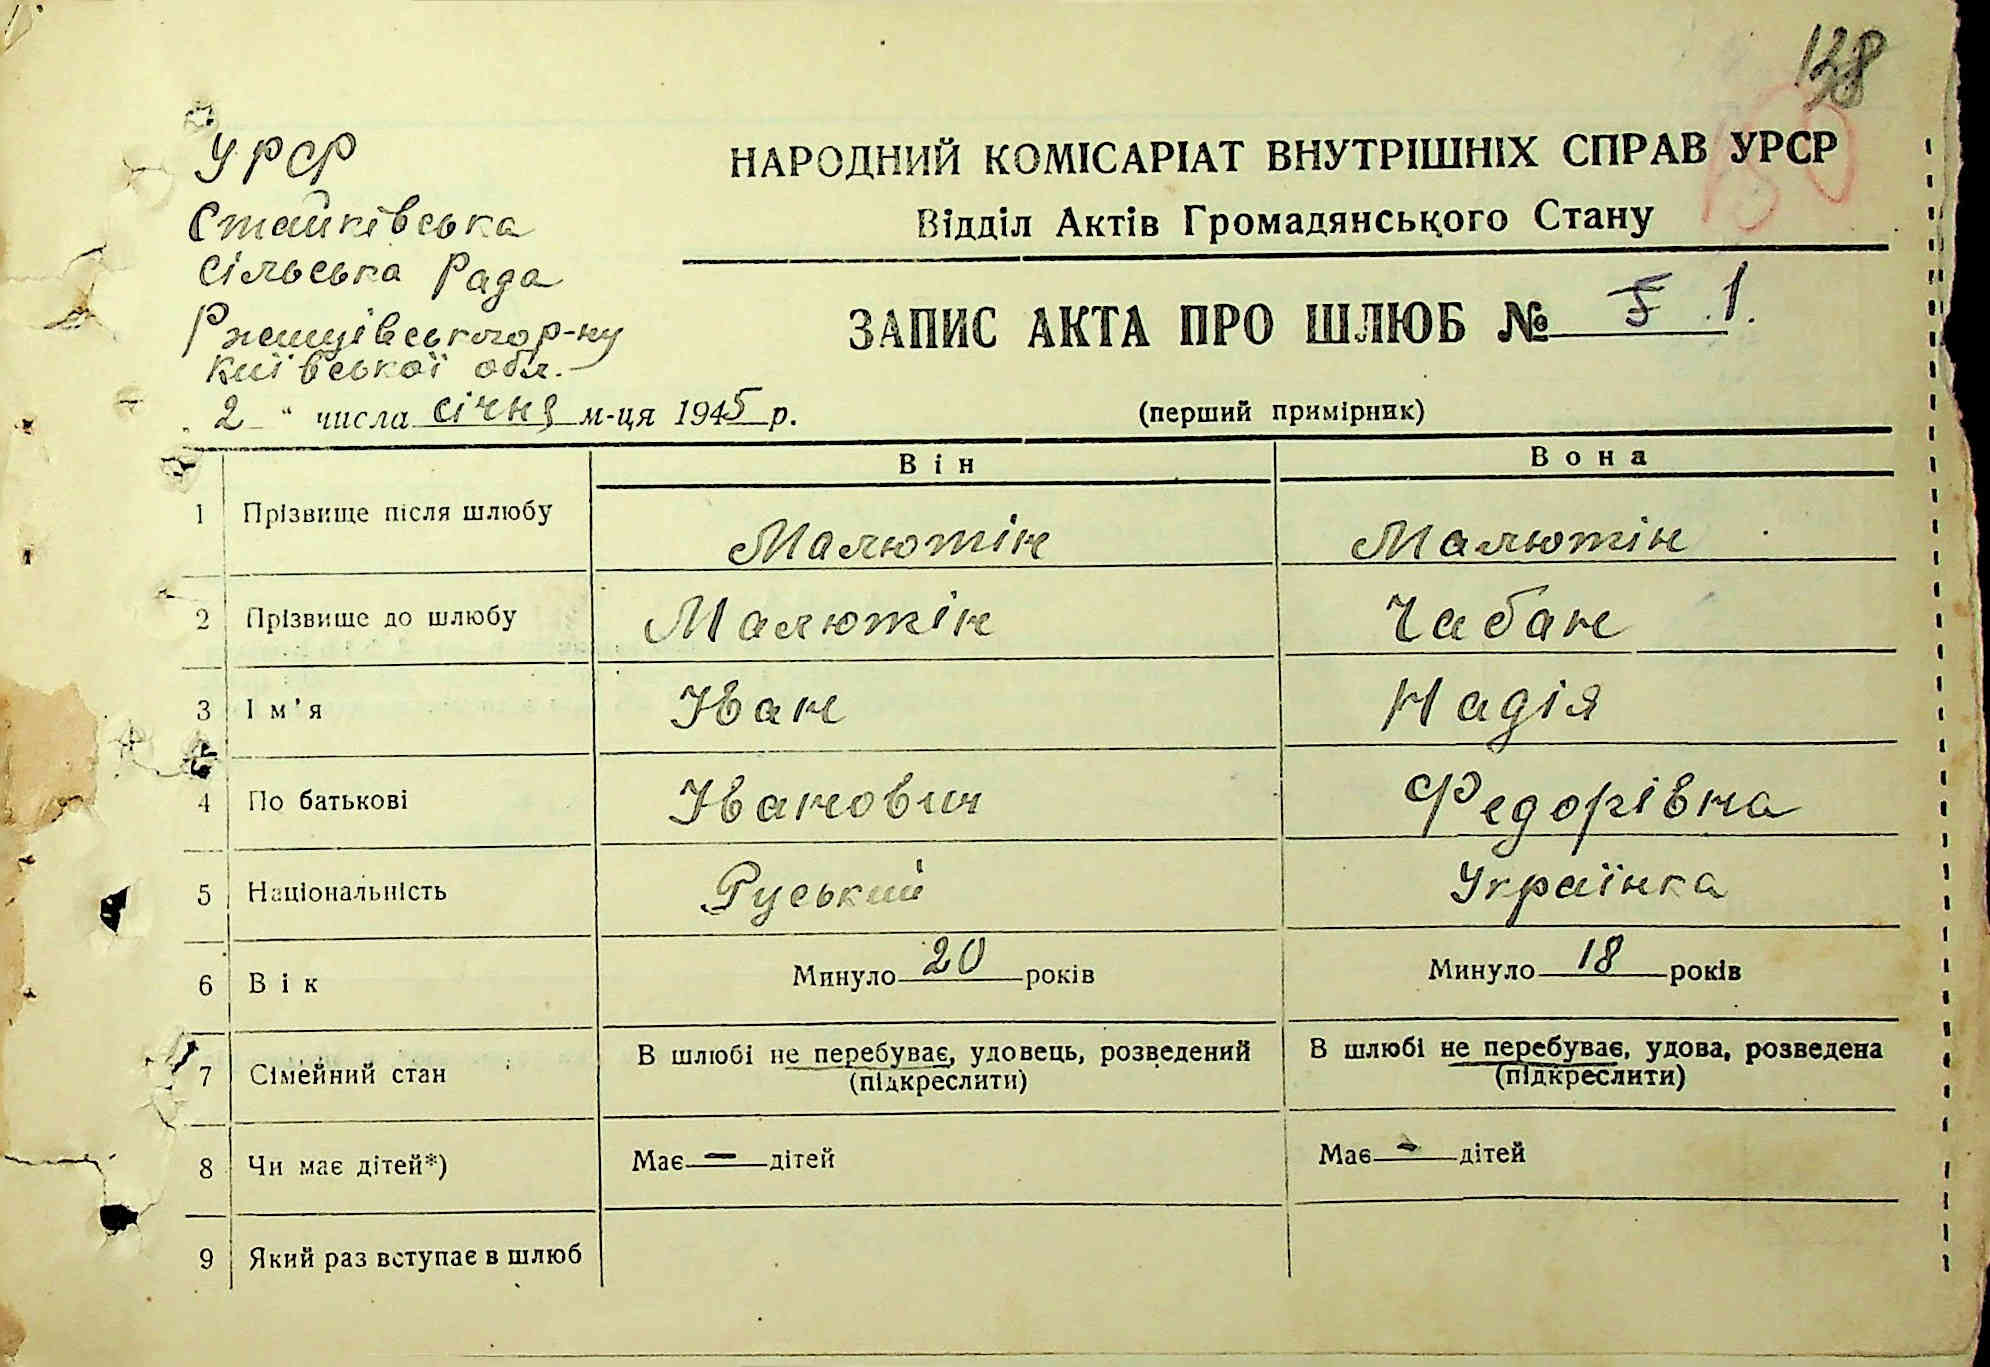 138
150
УРСР
Стайківська
сільська Рада
Ржищівського р-ну
Київської обл.
НАРОДНИЙ КОМІСАРІАТ ВНУТРІШНІХ СПРАВ УРСР
Відділ Актів Громадянського Стану
ЗАПИС АКТА ПРО ШЛЮБ № 5 1.
2 " числа січня м-ця 1945 р.
(перший примірник)
Він Вона
1 Прізвище після шлюбу Малютін Малютін
2 Прізвище до шлюбу Малютін Чабан
3 Ім'я Іван Надія
4 По батькові Іванович Федорівна
5 Національність Руський Українка
6 Вік Минуло 20 років Минуло 18 років
7 Сімейний стан В шлюбі не перебуває, удовець, розведений (підкреслити) В шлюбі не перебуває, удова, розведена (підкреслити)
8 Чи має дітей*) Має — дітей Має - дітей
9 Який раз вступає в шлюб